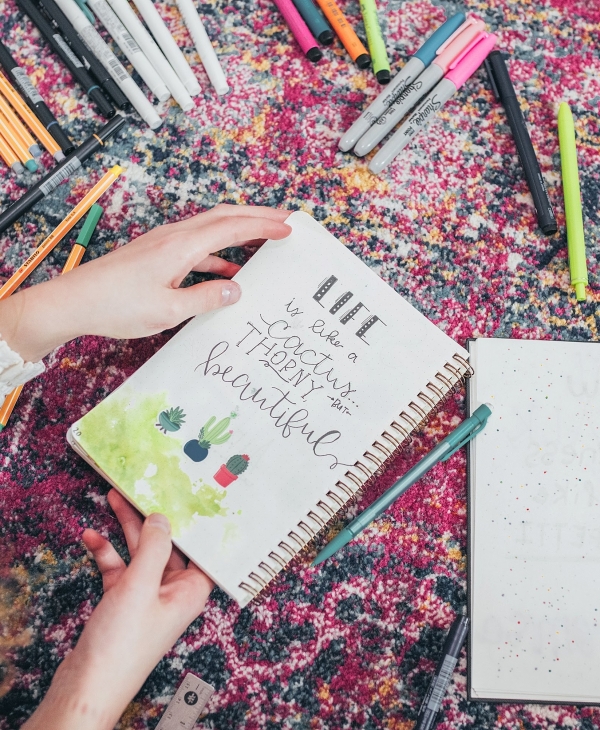 LIFE
is like a
cactus..
THORNY
-BUT-
beautiful
Sharpie
Sharpie
Sharpie